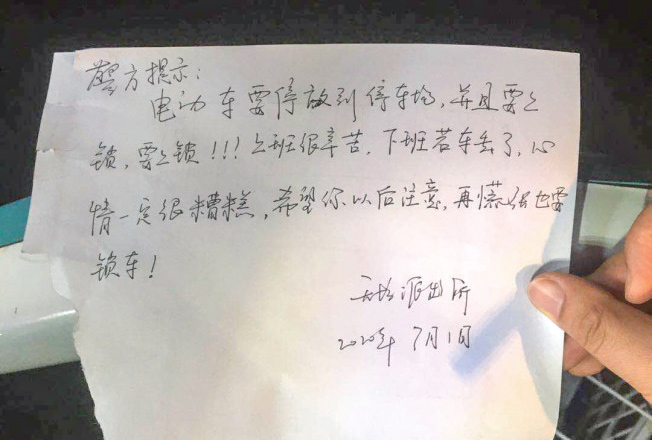 警方提示：
电动车要停放到停车场，并且要上
锁，要上锁！！！上班很辛苦，下班若车丢了，心
情一定很糟糕，希望你以后注意，再慌张也要
锁车！
派出所
2020年7月1日